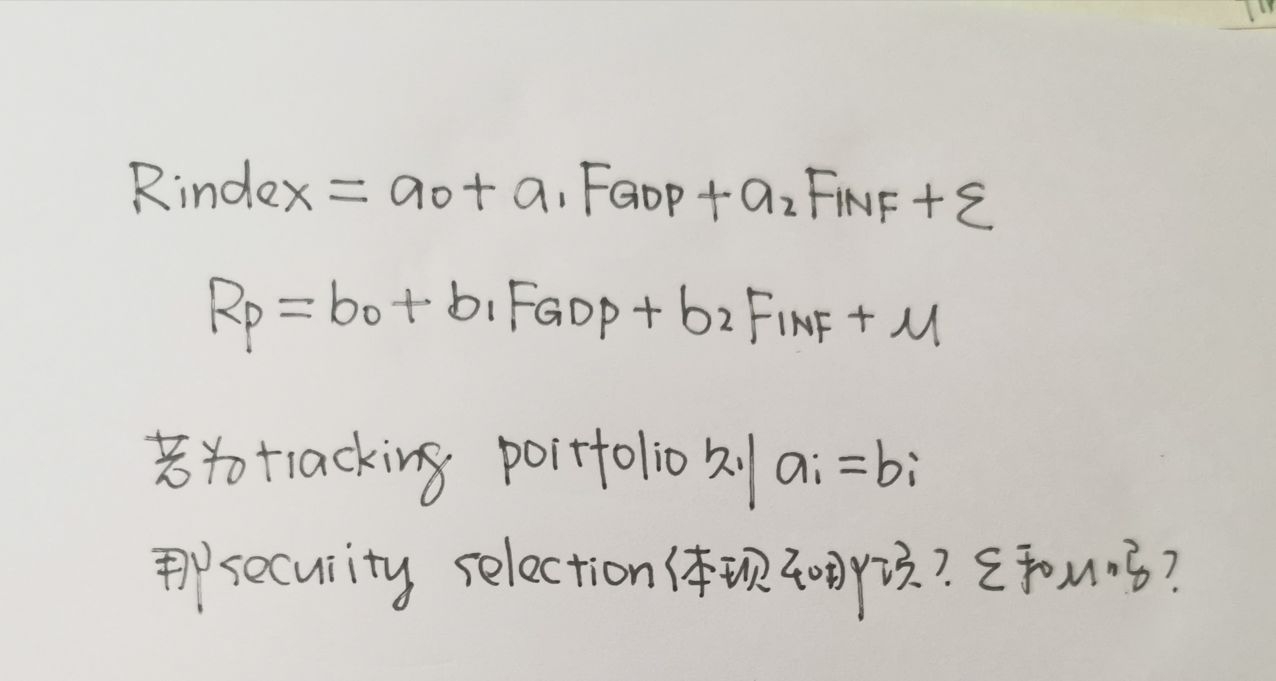 Rindex = a0 + a1 FGDP + a2 FINF + ε
Rp = b0 + b1 FGDP + b2 FINF + μ
若为tracking portfolio 则 ai = bi
那security selection体现在哪项？ε和μ吗？